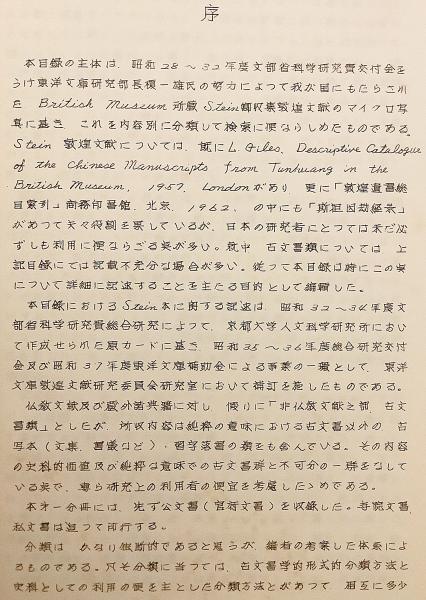 序
本目録の主体は、昭和28〜32年度文部省科学研究費交付金を
うけ東洋文庫研究部長榎一雄氏の努力によつて我が国にもたらされ
た British Museum 所蔵 Stein 蒐集敦煌文献のマイクロ写
真に基き、これを内容別に分類して検索に便ならしめたものである。
Stein 敦煌文献については、既に L. Giles, Descriptive Catalogue
of the Chinese Manuscripts from Tunhuang in the
British Museum, 1957, London があり、更に「敦煌遺書総
目索引」商務印書館、北京、1962、の中にも「斯坦因劫経録」
があつて夫々役割を果しているが、日本の研究者にとつては未だ必
ずしも利用に便ならざる点が多い。就中、古文書類については、上
記目録にては記載不充分な場合が多い。従つて本目録は特にこの点
について詳細に記述することを主たる目的として編輯した。
本目録における Stein 本に関する記述は、昭和32〜34年度文
部省科学研究費総合研究によつて、京都大学人文科学研究所におい
て作成せられた原カードに基き、昭和35〜36年度総合研究交付
金及び昭和37年度東洋文庫補助会による事業の一環として、東洋
文庫敦煌文献研究委員会研究室において補訂を施したものである。
仏教文献及び蔵外諸典籍に対し、仮りに「非仏教文献之部、古文
書類」としたが、所収内容は純粋の意味における古文書以外の、古
写本(文集、書儀など)・習字落書の類をも含んでいる。その内容
の史料的価値及び純粋な意味での古文書群と不可分の一群をなして
いる点で、専ら研究上の利用者の便宜を考慮したためである。
本オ一分冊には、先ず公文書(官府文書)を収録した。寺院文書
私文書は追つて印行する。
分類は、かなり微断的であると思うが、編者の考案した体系によ
るものである。只その分類に当つては、古文書学的形式的分類方法と
史料としての利用の便を主とした分類方法とがあつて、相互に多少